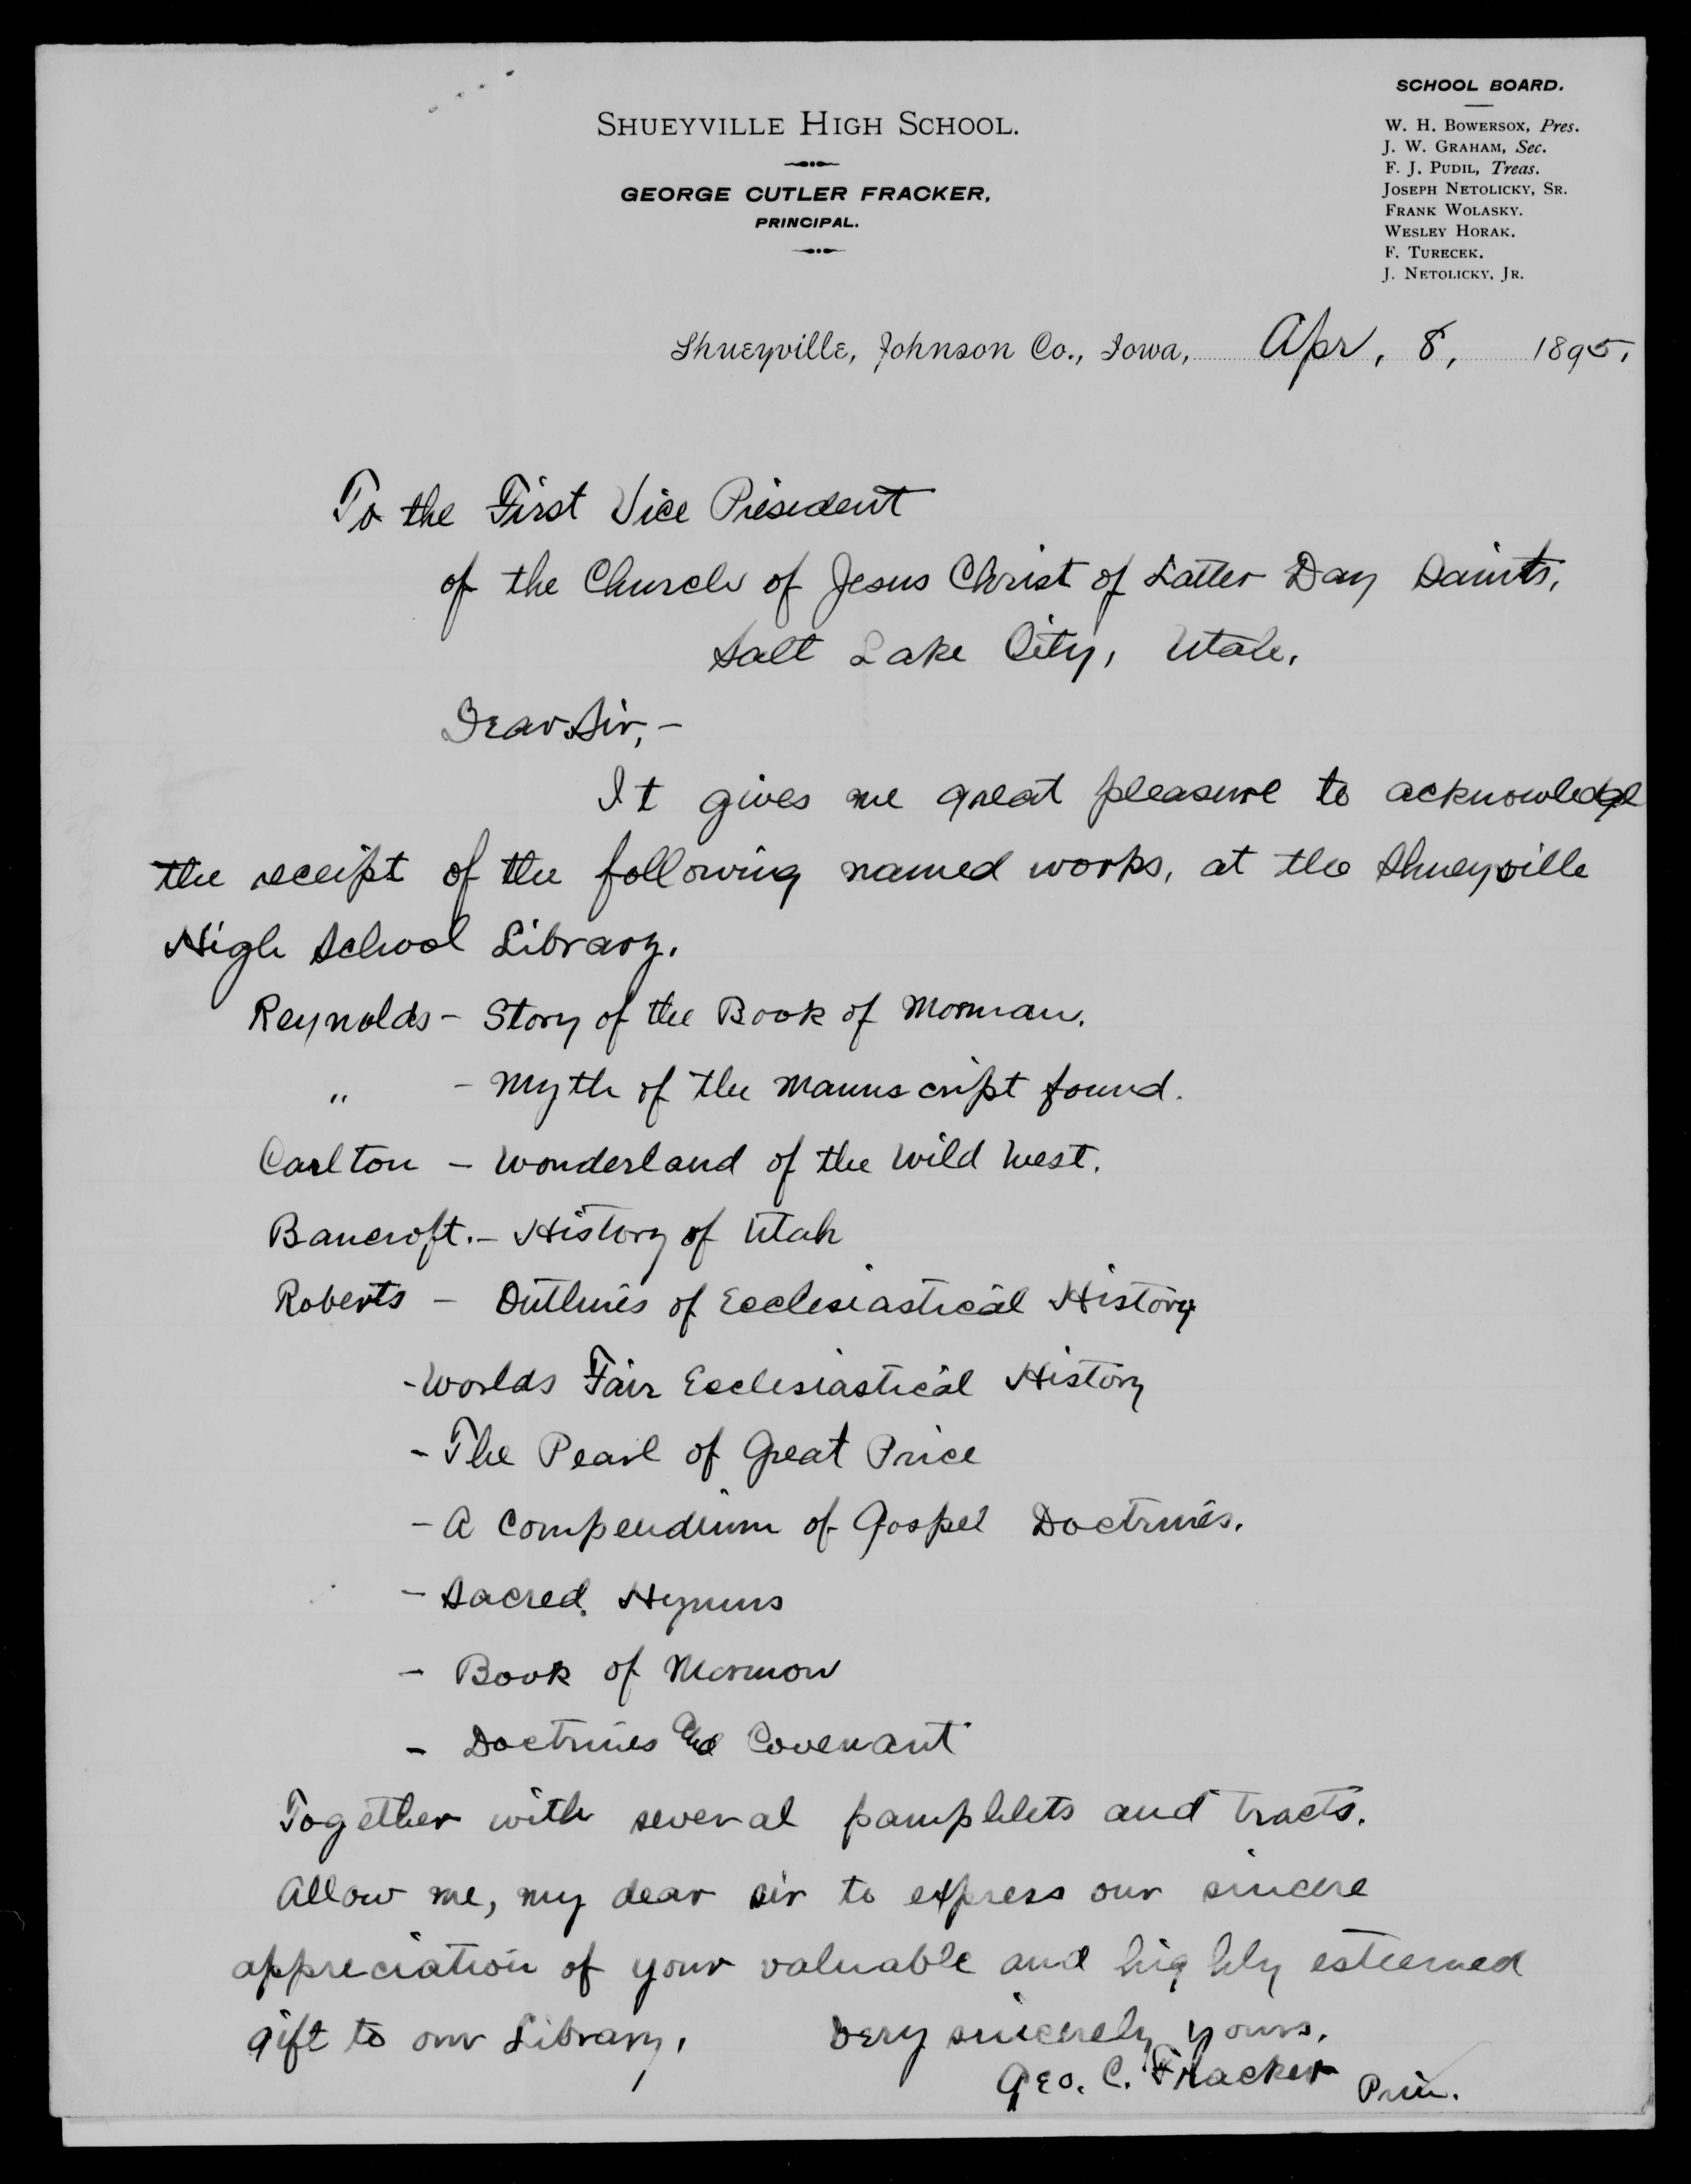 SHUEYVILLE HIGH SCHOOL.
GEORGE CUTLER FRACKER,
PRINCIPAL.
SCHOOL BOARD.
W. H. BOWERSOX, Pres.
J. W. GRAHAM, Sec.
F. J. PUDIL, Treas.
JOSEPH NETOLICKY, SR.
FRANK WOLASKY.
WESLEY HORAK.
F. TURECEK.
J. NETOLICKY, JR.
Shueyville, Johnson Co., Iowa, Apr, 8, 1895,
To the First Vice President
of the Church of Jesus Christ of Latter Day Saints,
Salt Lake City, Utah.
Dear Sir,-
It gives me great pleasure to acknowledge
the receipt of the following named works, at the Shueyville
High School Library.
Reynolds - Story of the Book of Morman.
" - Myth of the Manuscript found.
Carlton - Wonderland of the Wild West.
Bancroft. - History of Utah
Roberts - Outlines of Ecclesiastical History
- Worlds Fair Ecclesiastical History
- The Pearl of Great Price
- A Compendium of Gospel Doctrines.
- Sacred Hymns
- Book of Mormon
- Doctrines and Covenant
Together with several pamphlets and tracts.
Allow me, my dear sir to express our sincere
appreciation of your valuable and highly esteemed
gift to our Library, Very sincerely yours,
Geo. C. Fracker Prin.